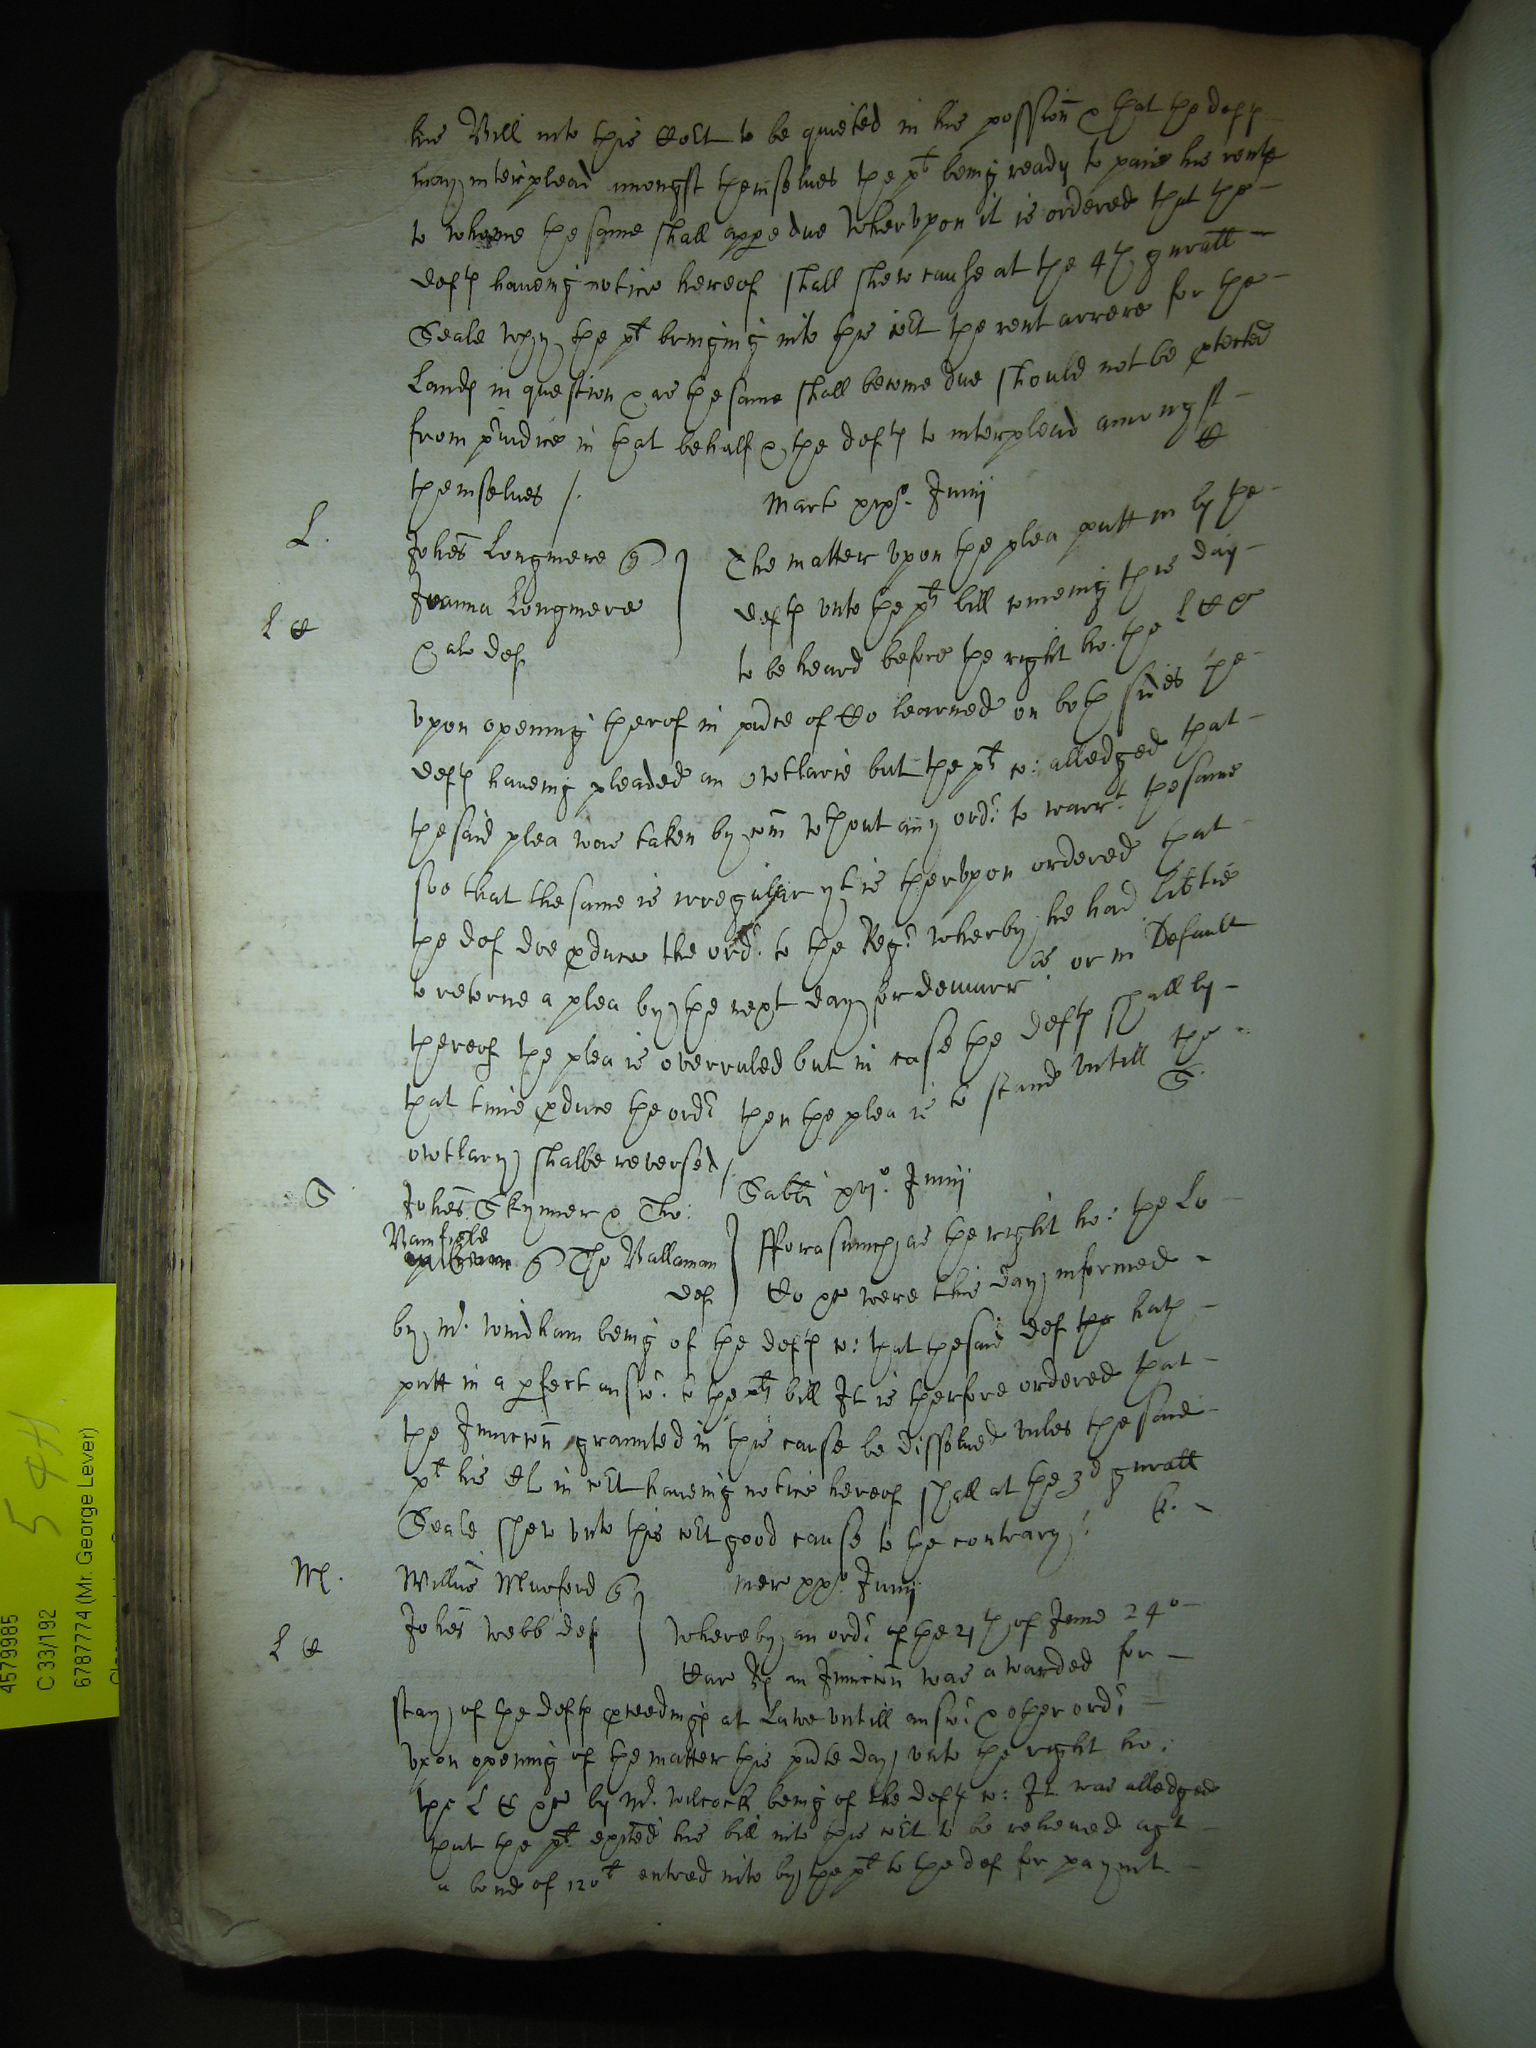 his Bill into this Co:rt to be quieted in his possion & that the defts
may interplead amongst themselves the plt being ready to paie his rente
to whome the same shall appe due Wherupon it is ordered that the
defts haveing notice hereof shall shew cause at the 4th gnrall
Seale why the plt bringing into this Court the rent arrere for the
Lands in question & as the same shall become due should not be ptected
from piudice in that behalf & the defts to interplead amongst
themselves /.
C
Marts xixo. Junij
L.
Johes Longmere q
Joanna Longmere
& als def
L C
The matter upon the plea putt in by the
defts unto the plts bill comeing this day
to be heard before the right ho. the L C &
upon opening therof in pnce of Co learned on both sides the
defts haveing pleaded an Owtlarie but the plts co: alledged that
the said plea was taken by com wthout any ordr to warrt the same
soe that the same is irregular yt is therupon ordered that
the def doe pduce the ordr. to the Regr wherby he had libtie
to retorne a plea by the next day for demurrs or in Default
thereof the plea is overruled but in case the defts shall by
that time pduce the ordr then the plea is to stand untill the
owtlary shalbe reversed /.
S.
Sabbi xvjo. Junij
S
Johes Skynner & Tho:
Bamfyle
q Tho Vallaman
def
Fforasmuch as the right ho: the Lo
Co &c were this day informed
by Mr. Windham being of the defts co: that the said def hath
putt in a pfect answr. to the plts bill It is therfore ordered that
the Iniuccon graunted in this cause be dissolved unles the said
plt his Cl in Court haveing notice hereof shall at the 3d gnrall
Seale shew unto this Court good cause to the contrary /
C.
M.
Willus Murford q
Johes Webb def
L C
mer xxo. Junij
Whereby an ordr of the 21th of June 24o
Car Rs an Iniuccon was awarded for
stay of the defts pceedings at Lawe untill answr & other ordr
upon opening of the matter this pnte day unto the right ho:
the L C &c by Mr. Wilcock being of the defts co: It was alledged
that the plt exited his bill into this Court to be releved agt
a bond of 120l entred into by the plt to the def for paymt
4579985
C 33/192
6787774 (Mr. George Lever)
544.